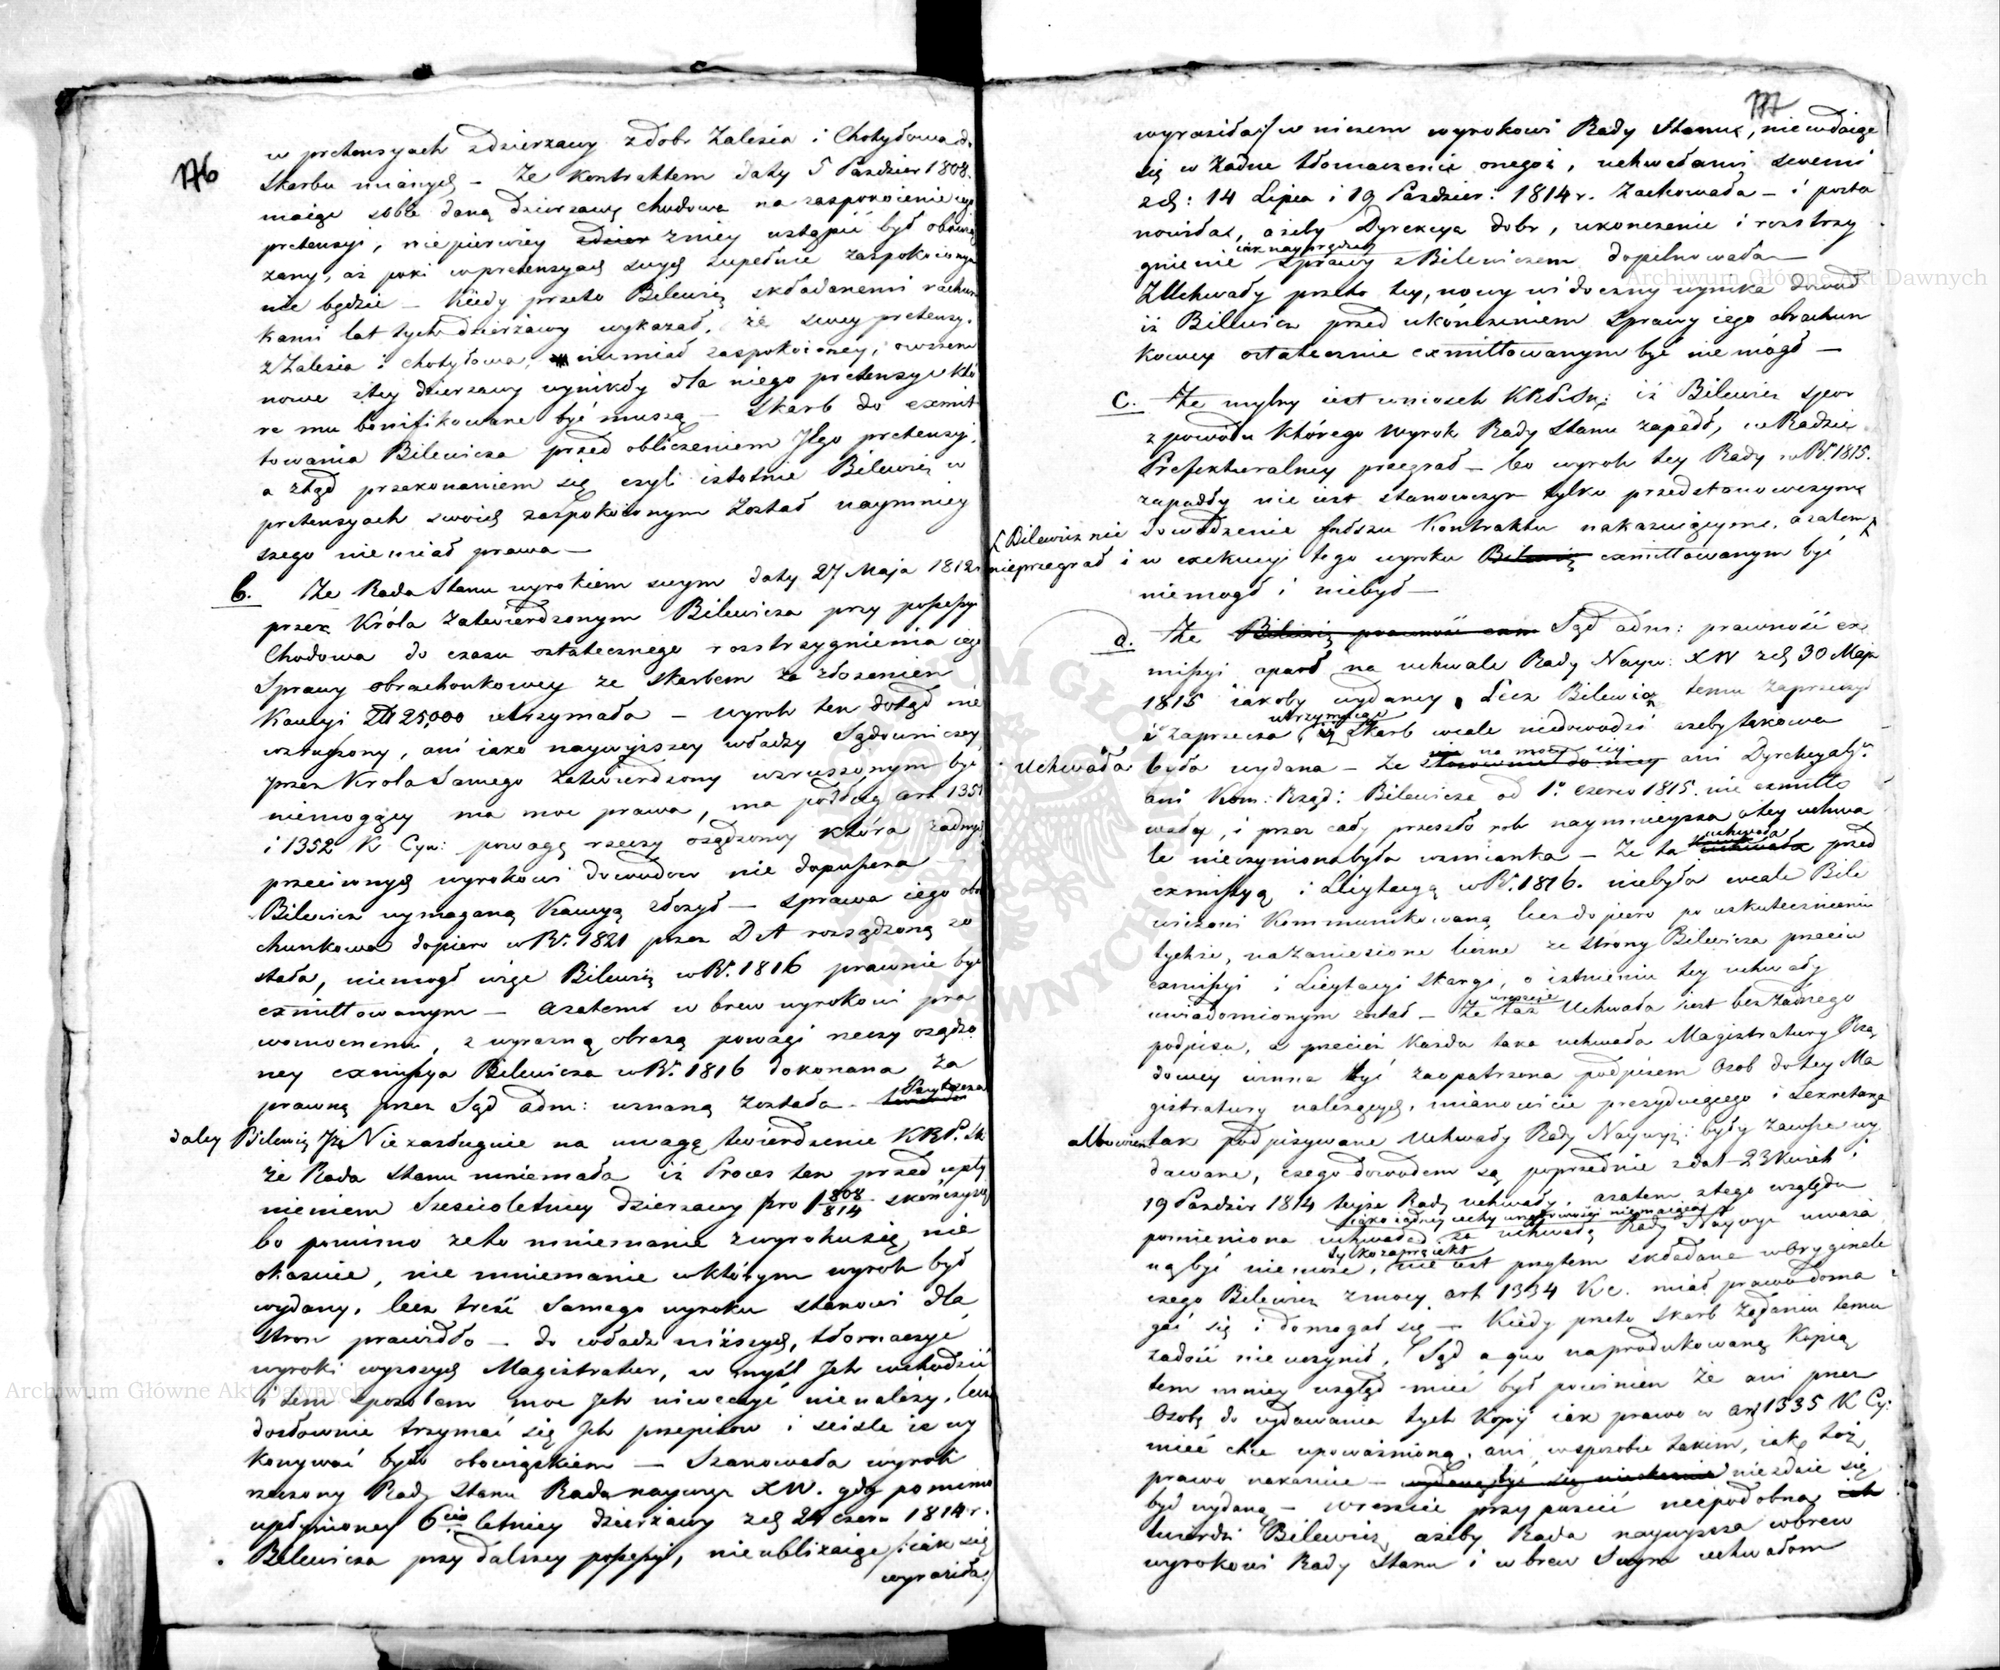 176
w pretensyach z dzierzawy z dobr Zalesia i Chotyłowa do
skarbu mianych – Ze kontraktem daty 5 Pazdzier 1808.
maiąc sobie daną dzierzawę Chudowa na zaspokoienie tych
pretensyi, niepierwiey zdzier zniey ustąpić był obowią
zany, aż poki w pretensyach swych zupełnie zaspokoionym
nie będzie – Kiedy przeto Bilewicz składanemi rachun
kami lat tych dzierżawy wykazał, że swey pretensyi
z Zalesia i Chotyłowa, niemiał zaspokoioney, owszem
nowe z tey dzierzawy wynikły dla niego pretensye któ
re mu bonifikowane być muszą – Skarb do exmit
towania Bilewicza przed obliczeniem Jego pretensyi,
a ztąd przekonaniem się czyli istotnie Bilewicz w
pretensyach swoich zaspokoionym został naymniey
szego niemiał prawa –
b. Ze Rada Stanu wyrokiem swym daty 27 Maja 1812 r
przez Króla zatwierdzonym Bilewicza przy possessyi
Chodowa do czasu ostatecznego rozstrzygnienia iego
Sprawy obrachonkowey ze skarbem za złożeniem
Kaucyi Zł 25,000 utrzymała – wyrok ten dotąd nie
wzruszony, ani iako naywyższey władzy Sądowniczey
przez Krola Samego zatwierdzony wzruszonym być
niemogący ma moc prawa, ma podług art 1351
i 1352 K Cyw: powagę rzeczy osądzoney która żadnych
przeciwnych wyrokowi dowodow nie dopuszcza
Bilewicz wymaganą Kaucyą złożył – sprawa iego obra
chunkowa dopiero w R. 1821 przez D A rozsądzoną zo
stała, niemogł więc Bilewicz w R. 1816 prawnie być
exmittowanym – a zatem w brew wyrokowi pra
womocnemu, z wyrazną obrazą powagi rzeczy osądzo
ney exmissya Bilewicza w R. 1816 dokonana za
prawną przez Sąd adm: uznaną została –
daley Bilewicz Niezasługuie na uwagę twierdzenie KRP. Sk
że Rada Stanu mniemała iż Proces ten przed upły
nieniem Sześcioletniey dzierzawy pro 1 808/814 skończy się
bo pomimo że to mniemanie z wyroku się nie
okazuie, nie mniemanie w którym wyrok był
wydany, lecz treść Samego wyroku stanowi dla
Stron prawidło – do władz niższych, tłomaczyć
wyroki wyższych Magistratur, w myśl Jch wchodzić
i tem sposobem moc Jch niweczyć nie należy, lecz
dosłownie trzymać się Jch przepisow i ściśle ie wy
konywać było obowiązkiem – Szanowała wyrok
rzeczony Rady Stanu Rada naywyz XW. gdy pomimo
upłynioney 6cio letniey dzierżawy z d 24 czerw 1814 r.
Bilewicza przy dalszey possessyi, nieubliżaiąc /: iak się
wyraziła :/
177
wyraziła :/ w niczem wyrokowi Rady Stanu, niewdaiąc
się w żadne tłomaczenie onegoż, uchwałami swemi
z d: 14 Lipca i 19 Pazdzier: 1814 r. zachowała – i posta
nowiła, ażeby Dyrekcya dobr, ukonczenie i rozstrzy
iak nayprędzey
gnienie Sprawy z Bilewiczem dopilnowała –
Z Uchwały przeto tey, nowy widoczny wynika dowod
iż Bilewicz przed ukończeniem Sprawy iego obrachun
kowey ostatecznie exmittowanym być niemógł –
c. Ze mylny iest wniosek KRPSk: iż Bilewicz spor
z powodu którego Wyrok Rady Stanu zapadł, w Radzie
Prefekturalney przegrał – bo wyrok tey Rady w R. 1815.
zapadły nie iest stanowczym tylko przedstanowczym
dowodzenie fałszu Kontraktu nakazuiącym, a zatem
Bilewicz nie
nieprzegrał i w exekucyi tego wyroku Bilewicz exmittowanym być
niemogł i niebył –
d. Ze Sąd adm: prawność ex
missyi oparł na uchwale Rady Nayw: XW z d 30 Maja
1815 iakoby wydaney, Lecz Bilewicz temu zaprzeczył
utrzymuiąc
i zaprzecza iż Skarb wcale niedowodzi ażeby takowa
Uchwała była wydana – że na mocy iey ani Dyrekcya
ani Kom: Rząd: Bilewicza od 1o czerw 1815. nie exmitto
wały, i przez cały przeszło rok naymnieysza o tey uchwa
le nieczynionabyła wzmianka – Ze ta uchwała przed
exmissyą i Licytacyą w R. 1816. niebyła wcale Bile
wiczowi kommunikowaną lecz dopiero po uskutecznieniu
tychże, na zaniesione liczne ze strony Bilewicza przeciw
exmissyi i Licytacyi skargi, o istnieniu tey uchwały
uwiadomionym został – Ze wreszcie taż Uchwała iest bez żadnego
podpisu, a przecież każda taka uchwała Magistratury Rzą
dowey winna być zaopatrzona podpisem Osob do tey Ma
gistratury należących, mianowicie prezyduiącego i Sekretarza
albowiem tak podpisywane Uchwały Rady Naywyż: były zawsze wy
dawane, czego dowodem są poprzednie z dat 23 Kwiet i
19 Pazdzier 1814 teyże Rady uchwały, a zatem z tego względu
iako żadney cechy urzędowości niemaiąca
pomieniona uchwała za uchwałę Rady Naywyz uważa
ną być niemoże, tylko za proiekt nie iest przytem składana w Oryginale
czego Bilewicz z mocy art 1334 K c. miał prawo doma
gać się i domagał się – Kiedy przeto Skarb żądaniu temu
zadość nie uczynił, Sąd a quo na produkowaną kopią
tem mniey wzgląd mieć był powinien że ani przez
Osobę do wydawania tych Kopij iak prawo w art 1335 K Cy:
mieć chce upoważnioną, ani w sposobie takim, iak toż
prawo nakazuie – niezdaie się
być wydaną – wreszcie przypuścić niepodobna
twierdzi Bilewicz, ażeby Rada naywyższa wbrew
wyrokowi Rady Stanu i w brew Swym uchwałom
Archiwum Główne Akt Dawnych
Archiwum Główne Akt Dawnych